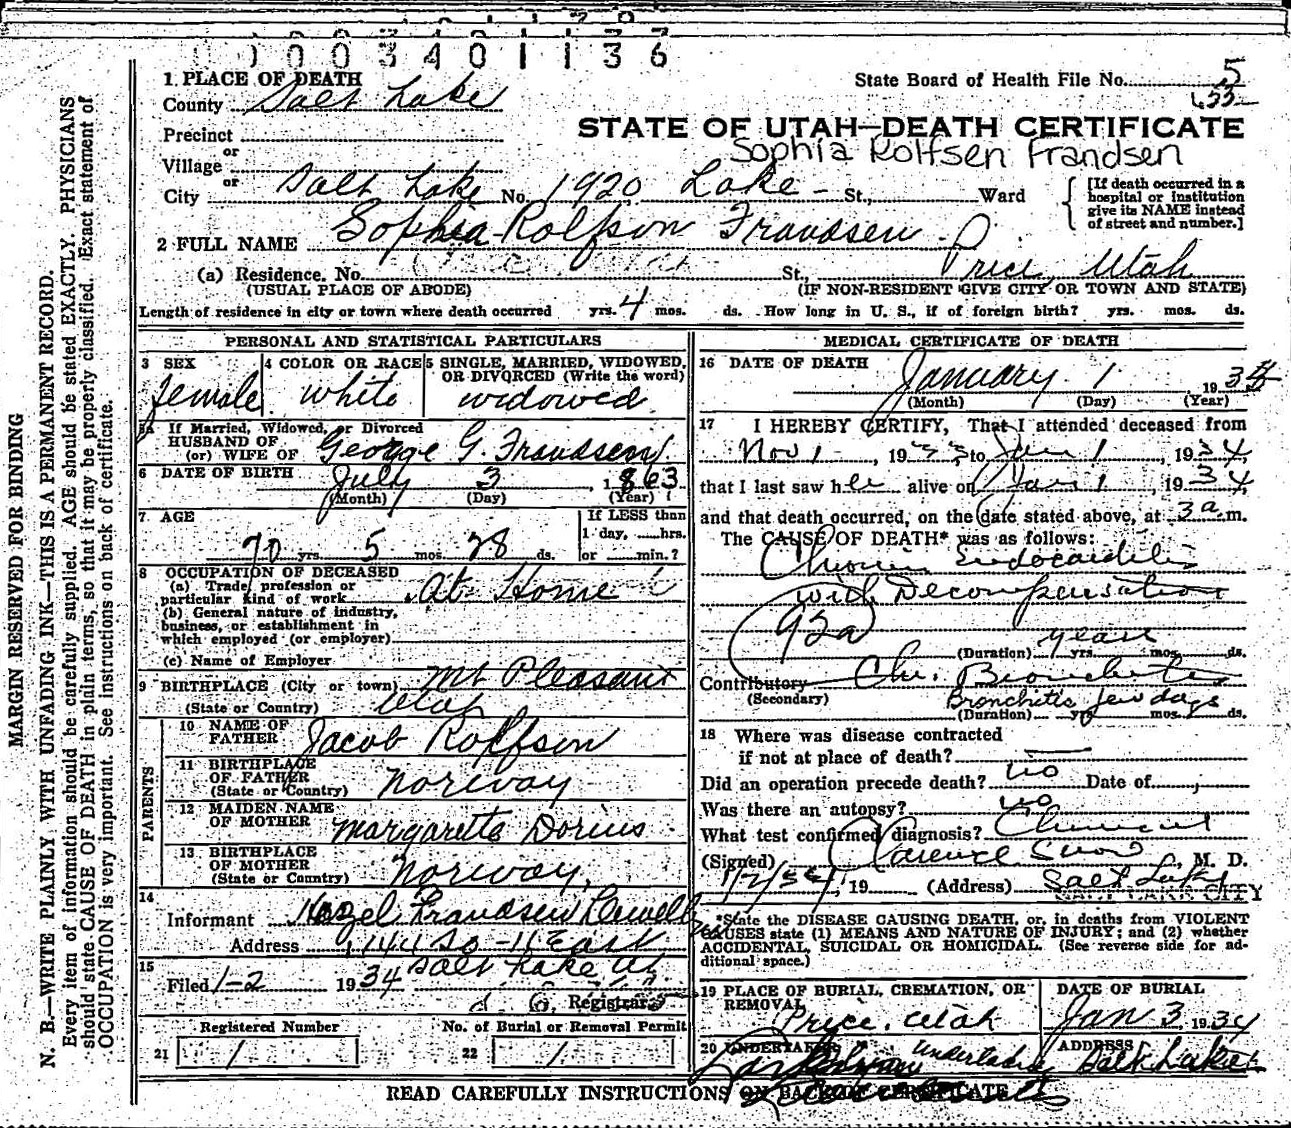 0 0 3 4 0 1 1 3 6
1 PLACE OF DEATH
County Salt Lake
State Board of Health File No. 5
Precinct
or
Village
or
City Salt Lake No. 1920 Lake - St., Ward
STATE OF UTAH—DEATH CERTIFICATE
Sophia Rolfsen Frandsen
[If death occurred in a
hospital or institution
give its NAME instead
of street and number.]
2 FULL NAME Sophia Rolfson Frandsen
(a) Residence, No. St., Price, Utah
(USUAL PLACE OF ABODE) (IF NON-RESIDENT GIVE CITY OR TOWN AND STATE)
Length of residence in city or town where death occurred yrs. 4 mos. ds. How long in U. S., if of foreign birth? yrs. mos. ds.
PERSONAL AND STATISTICAL PARTICULARS
3 SEX
female
4 COLOR OR RACE
white
5 SINGLE, MARRIED, WIDOWED,
OR DIVORCED (Write the word)
widowed
5a If Married, Widowed, or Divorced
HUSBAND OF
(or) WIFE OF George G. Frandsen
6 DATE OF BIRTH July 3, 1863
(Month) (Day) (Year)
7 AGE
70 yrs. 5 mos. 28 ds.
If LESS than
1 day, hrs.
or min.?
8 OCCUPATION OF DECEASED
(a) Trade, profession or
particular kind of work At Home
(b) General nature of industry,
business, or establishment in
which employed (or employer)
(c) Name of Employer
9 BIRTHPLACE (City or town) Mt Pleasant
(State or Country) Utah
PARENTS
10 NAME OF
FATHER Jacob Rolfson
11 BIRTHPLACE
OF FATHER
(State or Country) Norway
12 MAIDEN NAME
OF MOTHER Margarette Dorius
13 BIRTHPLACE
OF MOTHER
(State or Country) Norway.
14
Informant Hazel Frandsen
Address So - 11 East
15 Salt Lake Ut.
Filed 1-2 1934
Registrar
Registered Number No. of Burial or Removal Permit
21 1 22 1
MEDICAL CERTIFICATE OF DEATH
16 DATE OF DEATH
January 1, 1934
(Month) (Day) (Year)
17 I HEREBY CERTIFY, That I attended deceased from
Nov 1, 1933, to Jan 1, 1934,
that I last saw her alive on Jan 1, 1934,
and that death occurred, on the date stated above, at 3 a m.
The CAUSE OF DEATH* was as follows:
Chronic Endocarditis
with Decompensation
92a
(Duration) years yrs. mos. ds.
Contributory Chr. Bronchitis
(Secondary) Bronchitis few days
(Duration) yrs. mos. ds.
18 Where was disease contracted
if not at place of death?
Did an operation precede death? no Date of
Was there an autopsy? no
What test confirmed diagnosis? Chemical
(Signed) Clarence Snow, M. D.
1/2/34, 19 (Address) Salt Lake
SALT LAKE CITY
*State the DISEASE CAUSING DEATH, or, in deaths from VIOLENT
CAUSES state (1) MEANS AND NATURE OF INJURY; and (2) whether
ACCIDENTAL, SUICIDAL OR HOMICIDAL. (See reverse side for ad-
ditional space.)
19 PLACE OF BURIAL, CREMATION, OR
REMOVAL
Price, Utah
DATE OF BURIAL
Jan 3 1934
20 UNDERTAKER ADDRESS
Salt Lake
READ CAREFULLY INSTRUCTIONS ON BACK OF CERTIFICATE
MARGIN RESERVED FOR BINDING
N. B.—WRITE PLAINLY WITH UNFADING INK—THIS IS A PERMANENT RECORD.
Every item of information should be carefully supplied. AGE should be stated EXACTLY. PHYSICIANS
should state CAUSE OF DEATH in plain terms, so that it may be properly classified. Exact statement of
OCCUPATION is very important. See instructions on back of certificate.